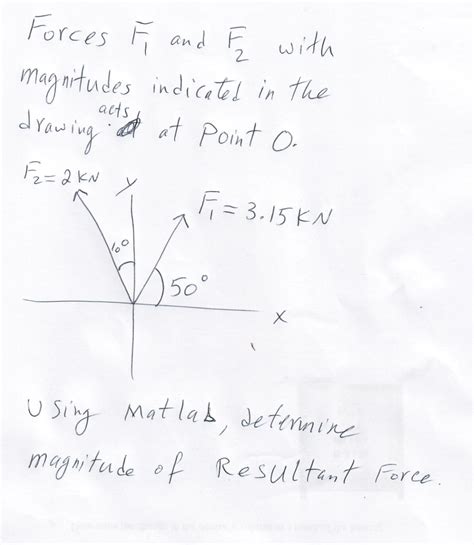 Forces F̄₁ and F̄₂ with
magnitudes indicated in the
drawing acts at Point O.
F̄₂ = 2 KN
y
F̄₁ = 3.15 KN
10°
50°
x
Using Matlab, determine
magnitude of Resultant Force.